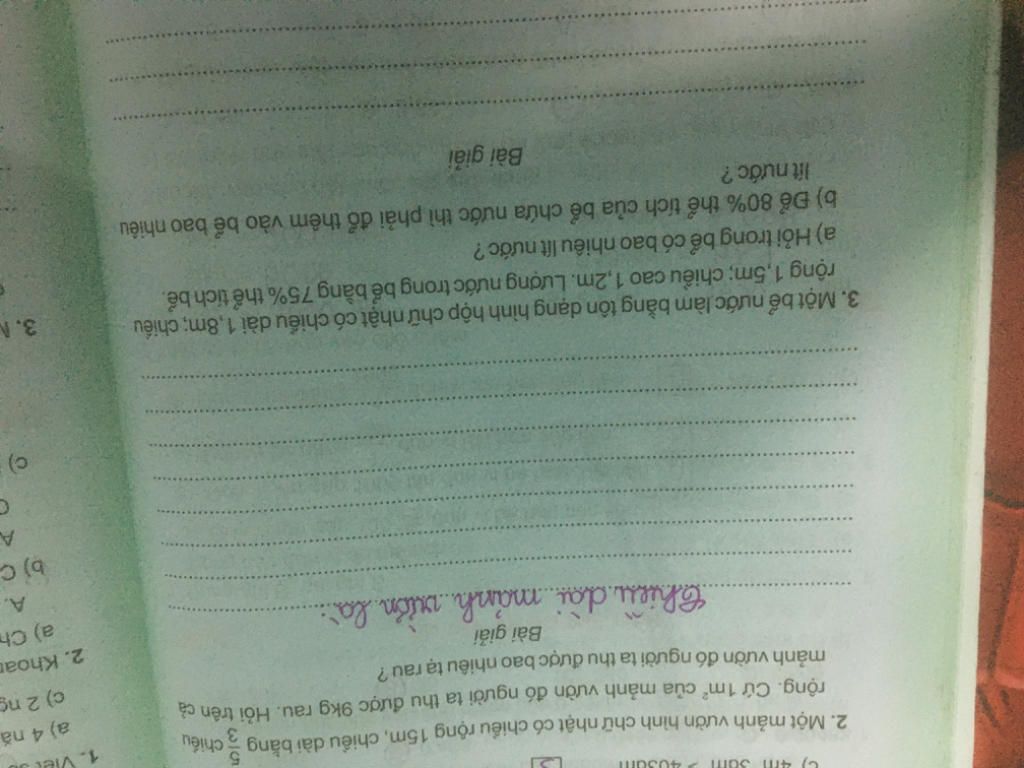 c) 4m 3dm > 403dm
2. Một mảnh vườn hình chữ nhật có chiều rộng 15m, chiều dài bằng 5/3 chiều
rộng. Cứ 1m² của mảnh vườn đó người ta thu được 9kg rau. Hỏi trên cả
mảnh vườn đó người ta thu được bao nhiêu tạ rau ?
Bài giải
Chiều dài mảnh vườn là:
3. Một bể nước làm bằng tôn dạng hình hộp chữ nhật có chiều dài 1,8m; chiều
rộng 1,5m; chiều cao 1,2m. Lượng nước trong bể bằng 75% thể tích bể.
a) Hỏi trong bể có bao nhiêu lít nước ?
b) Để 80% thể tích của bể chứa nước thì phải đổ thêm vào bể bao nhiêu
lít nước ?
Bài giải
1. Viết
a) 4 nă
c) 2 ng
2. Khoan
a) Ch
A.
b) C
A
c)
3. M